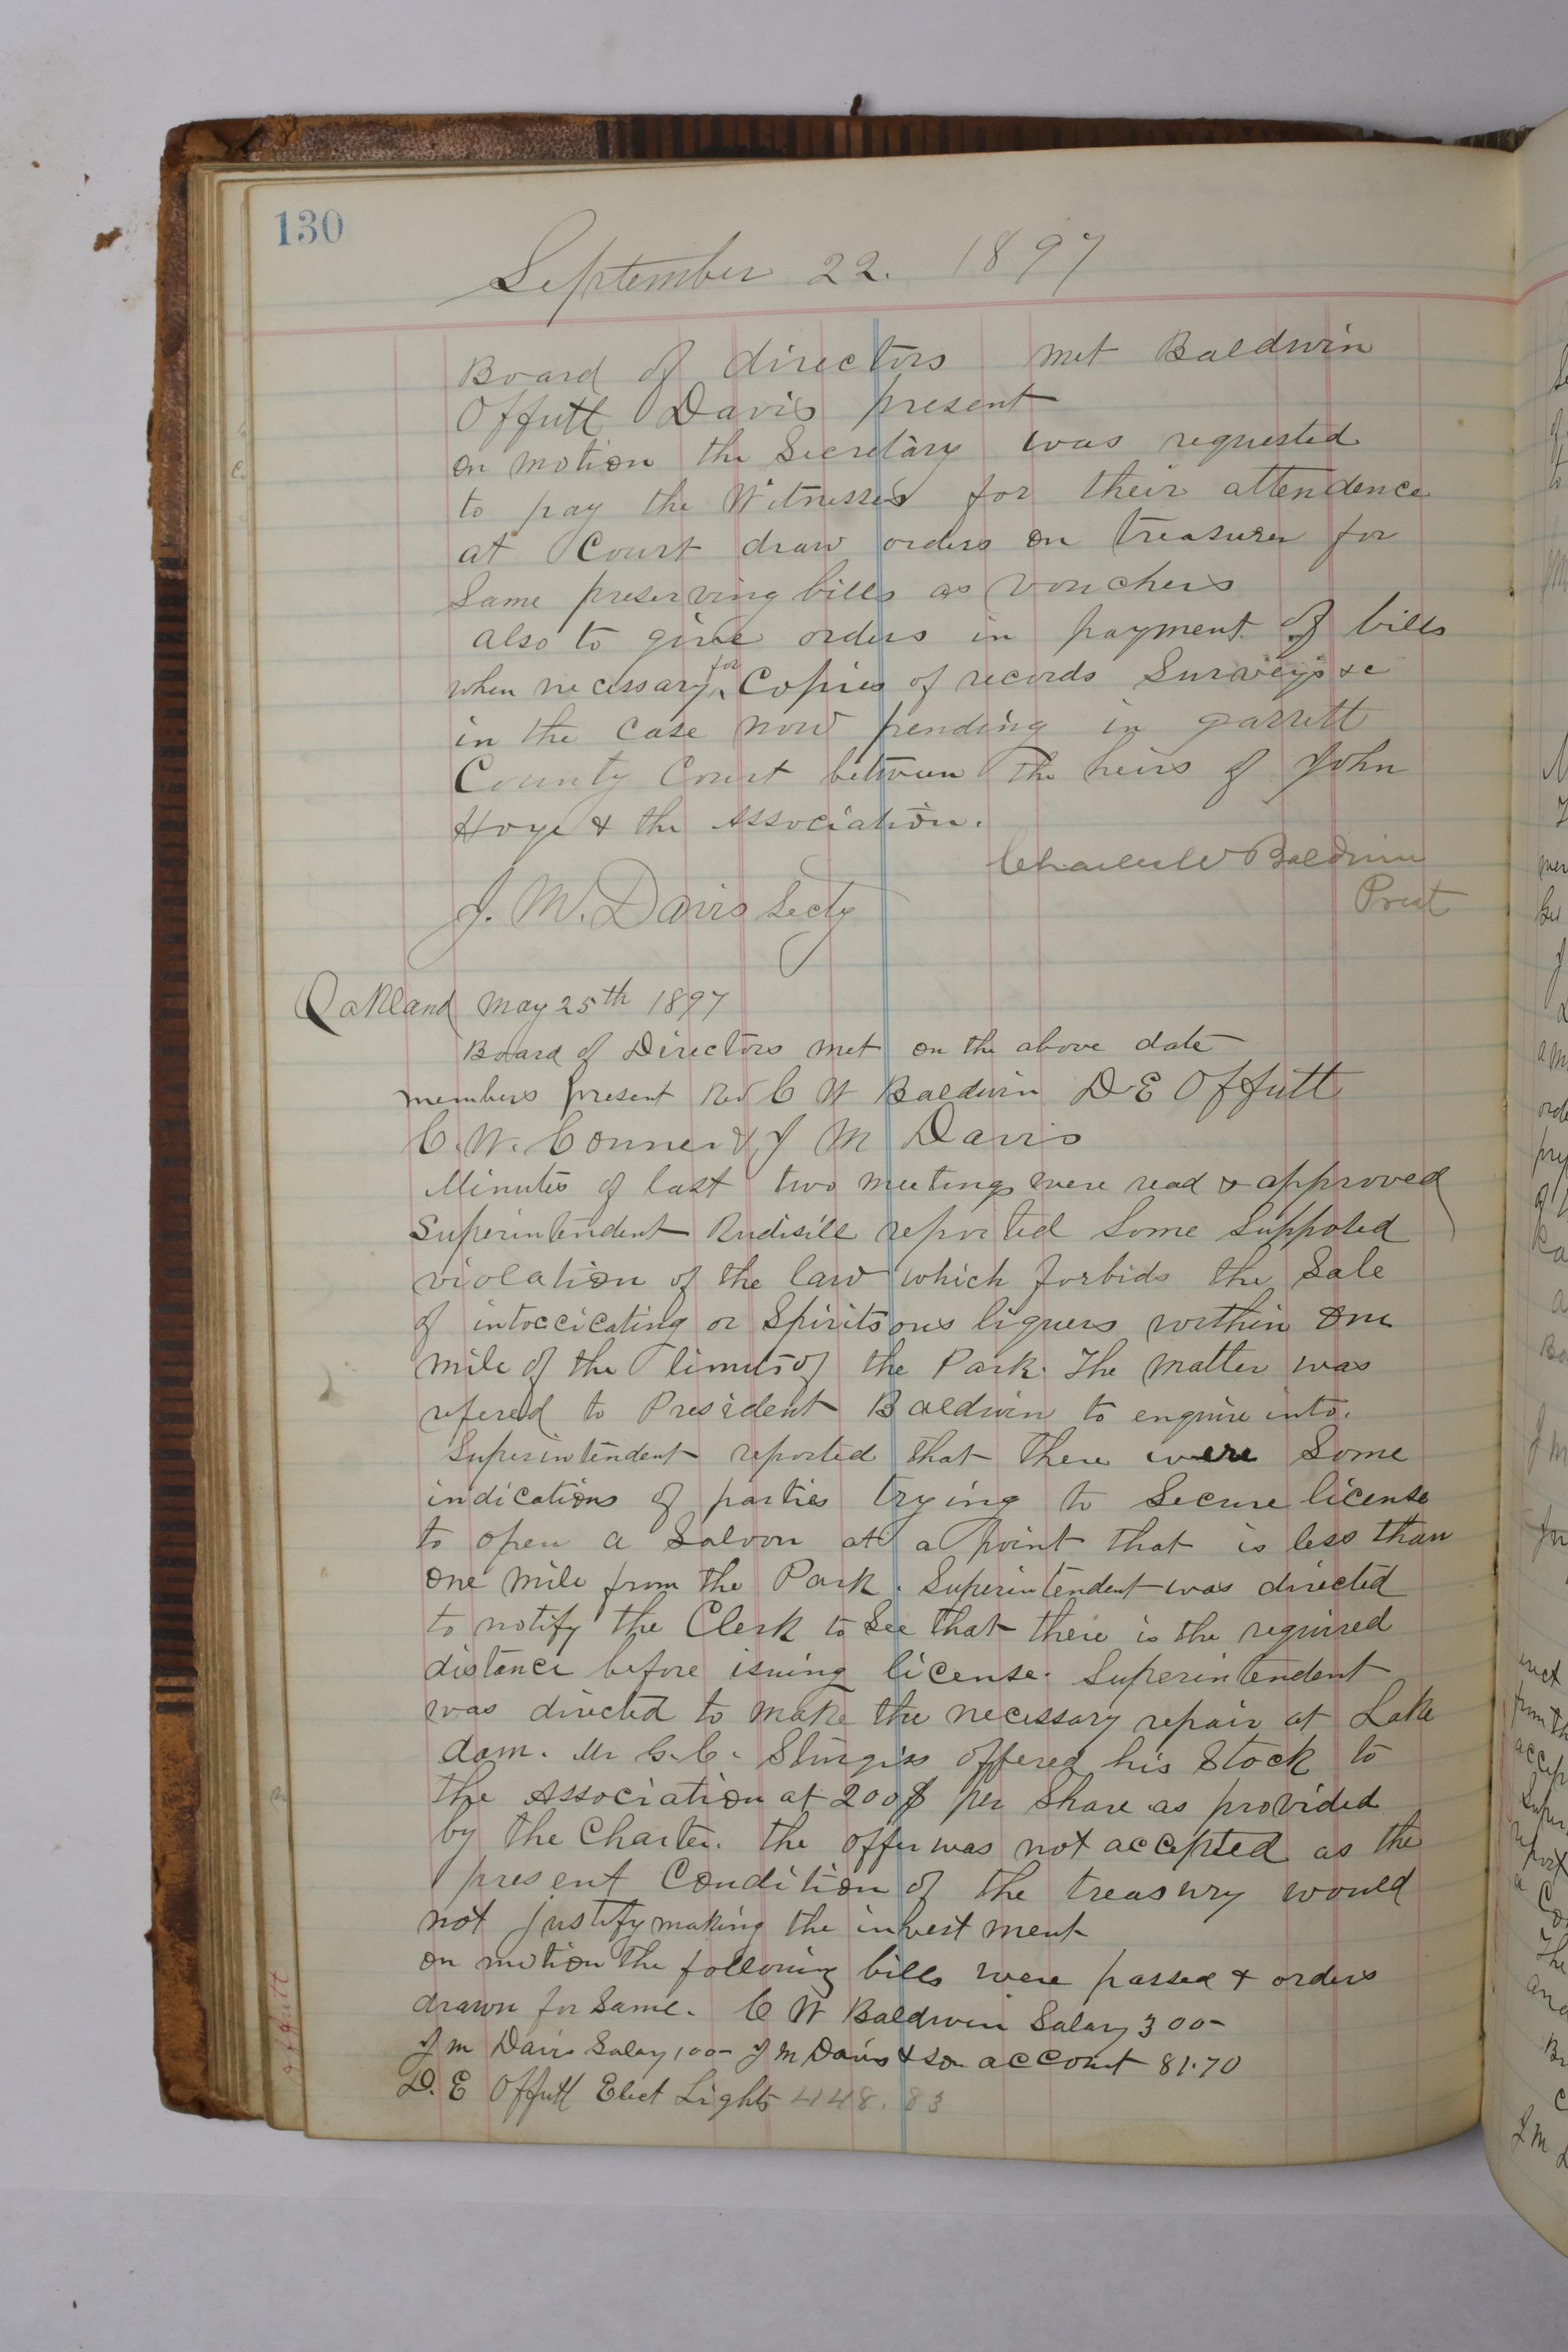 130
September 22. 1897
Board of directors met Baldwin
Offutt Davis present
on motion the Secretary was requested
to pay the Witnesses for their attendence
at Court draw orders on treasurer for
Same preserving bills as vouchers
also to give orders in payment of bills
when necessary for Copies of records Surveys &c
in the case now pending in garrett
County Court between the heirs of John
Hoye & the Association.
Charles W Baldwin
Prest
J. M. Davis Secty
Oakland May 25th 1897
Board of Directors met on the above date
members present Rev C W Baldwin D E Offutt
C. W. Conner & J M Davis
Minutes of last two meetings were read & approved
Superintendent Rudisill reported Some Supposed
violation of the law which forbids the Sale
of intoccicating or Spiritsous liquers within one
mile of the limits of the Park. The matter was
refered to President Baldwin to enquire into.
Superintendent reported that there were Some
indications of parties trying to Secure license
to open a Saloon at a point that is less than
one mile from the Park. Superintendent was directed
to notify the Clerk to See that there is the required
distance before issuing license. Superintendent
was directed to make the necessary repair at Lake
dam. Mr G. C. Sturgiss offered his Stock to
the Association at 200$ per Share as provided
by the Charter. the offer was not accepted as the
present Condition of the treasury would
not justify making the investment
on motion the following bills were passed & orders
drawn for Same. C W Baldwin Salary 300-
J M Davis Salary 100- J M Davis & Son account 81.70
D. E Offutt Elect Lights 448.83